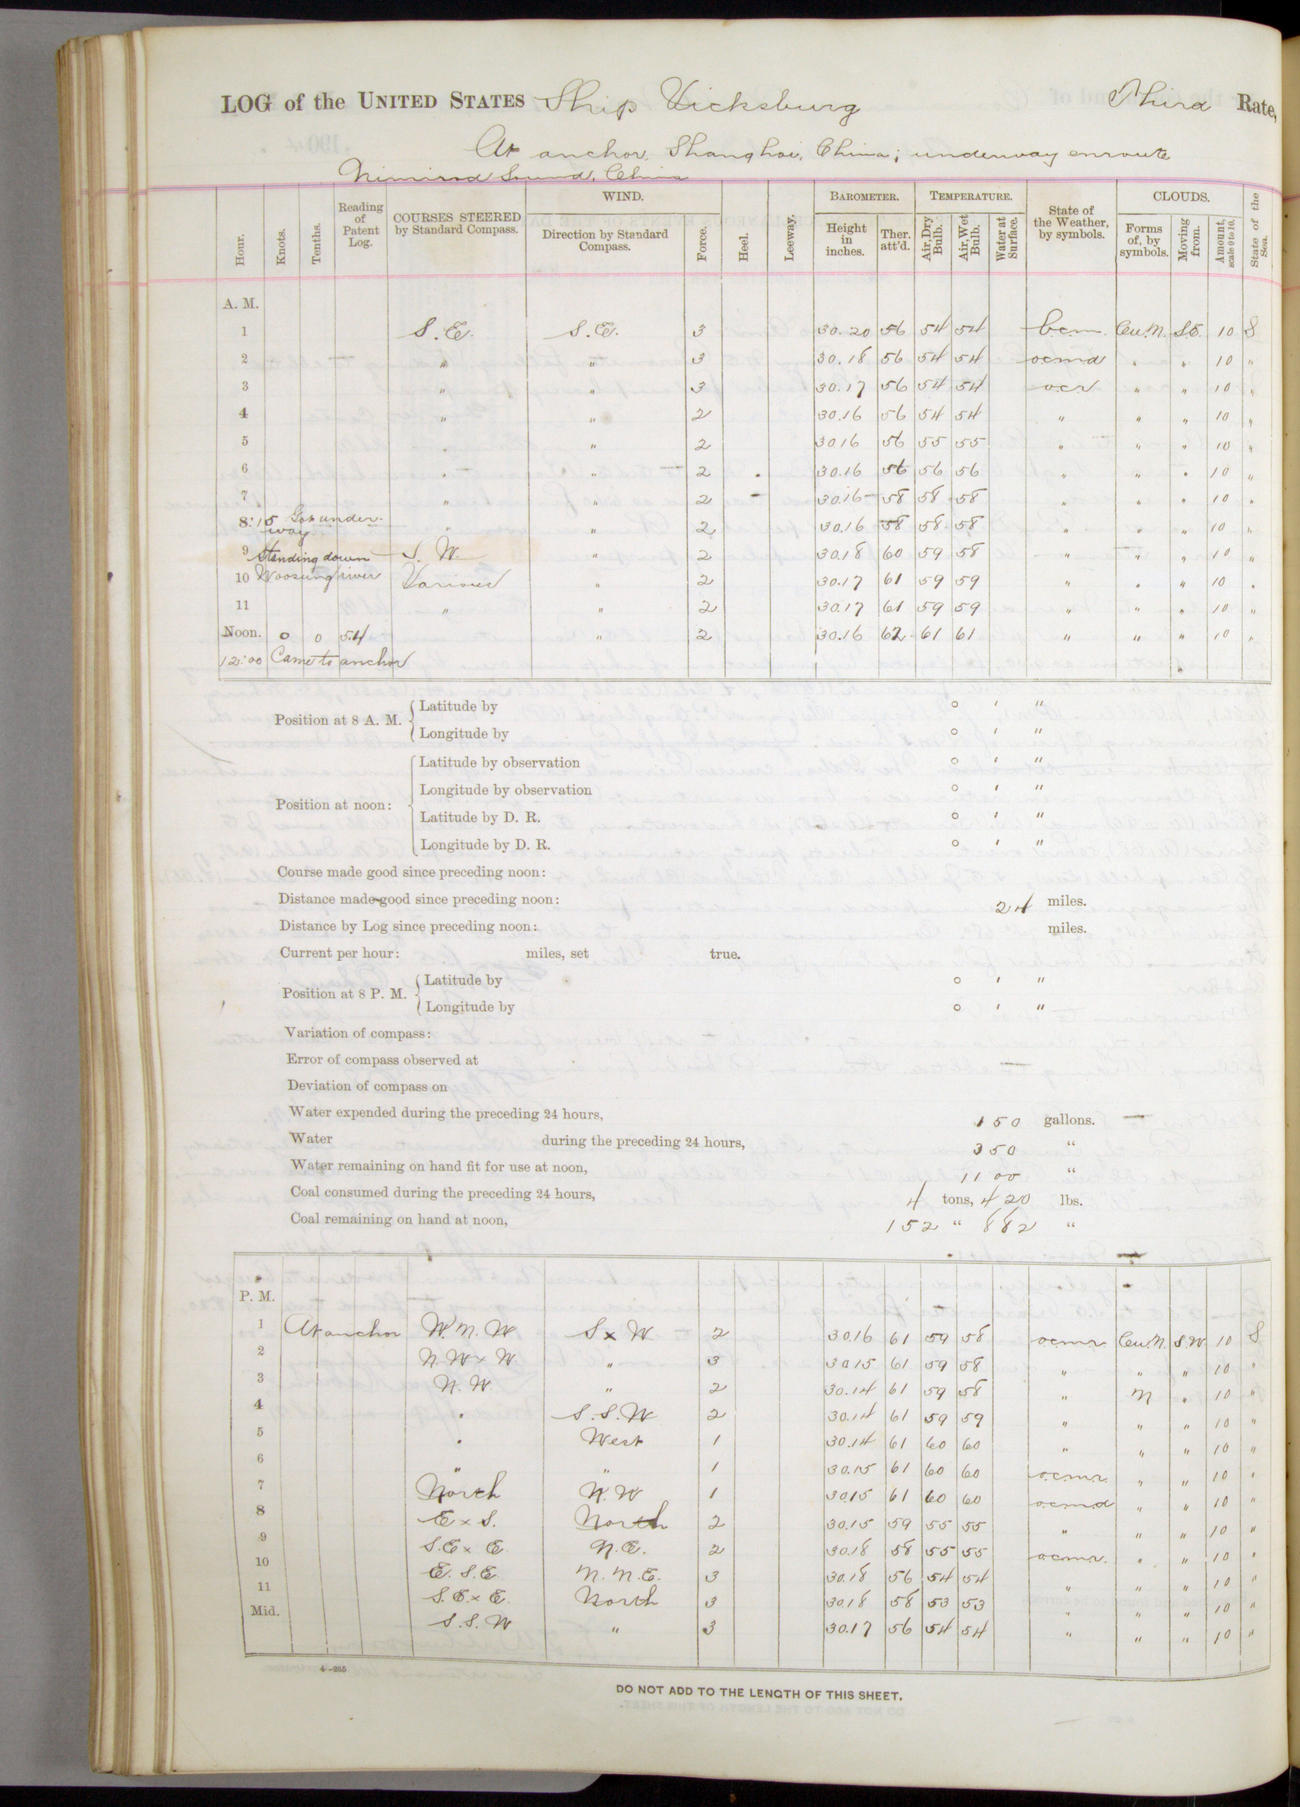 LOG of the UNITED STATES Ship Vicksburg Third Rate,
At anchor, Shanghai, China; underway enroute
Nimrod Sound, China
Hour. Knots. Tenths. Reading of Patent Log. COURSES STEERED by Standard Compass. WIND. Direction by Standard Compass. Force. Heel. Leeway. BAROMETER. Height in inches. Ther. att'd. TEMPERATURE. Air, Dry Bulb. Air, Wet Bulb. Water at Surface. State of the Weather, by symbols. CLOUDS. Forms of, by symbols. Moving from. Amount, scale 0 to 10. State of the Sea.
A. M.
1 S.E. S.E. 3 30.20 56 54 54 bcm. Cu.N. S.E. 10 S
2 " " 3 30.18 56 54 54 ocmd " " 10 "
3 " " 3 30.17 56 54 54 ocr " " 10 "
4 " " 2 30.16 56 54 54 " " " 10 "
5 " " 2 3016 56 55 55 " " " 10 "
6 " " 2 30.16 56 56 56 " " " 10 "
7 " " 2 30.16 58 58 58 " " " 10 "
8:15 Got under-way " " 2 30.16 58 58 58 " " " 10 "
9 Standing down S. W. " 2 30.18 60 59 58 " " " 10 "
10 Woosung river Various " 2 30.17 61 59 59 " " " 10 "
11 " " 2 30.17 61 59 59 " " " 10 "
Noon. 0 0 54 " 2 30.16 62 61 61 " " " 10 "
12:00 Came to anchor
Position at 8 A. M. Latitude by ° ' "
Longitude by ° ' "
Position at noon: Latitude by observation ° ' "
Longitude by observation ° ' "
Latitude by D. R. ° ' "
Longitude by D. R. ° ' "
Course made good since preceding noon:
Distance made good since preceding noon: 24 miles.
Distance by Log since preceding noon: miles.
Current per hour: miles, set true.
Position at 8 P. M. Latitude by ° ' "
Longitude by ° ' "
Variation of compass:
Error of compass observed at —
Deviation of compass on
Water expended during the preceding 24 hours, 150 gallons. —
Water during the preceding 24 hours, 350 "
Water remaining on hand fit for use at noon, 1100 "
Coal consumed during the preceding 24 hours, 4 tons, 420 lbs.
Coal remaining on hand at noon, 152 " 882 "
P. M.
1 At anchor W.N.W S x W 2 30.16 61 59 58 ocmr Cu.N. S.W 10 S
2 N.W x W " 3 3015 61 59 58 " " " 10 "
3 N.W. " 2 30.14 61 59 58 " N " 10 "
4 " S.S.W 2 30.14 61 59 59 " " " 10 "
5 " West 1 30.14 61 60 60 " " " 10 "
6 " " 1 30.15 61 60 60 ocmr " " 10 "
7 North N.W 1 3015 61 60 60 ocmd " " 10 "
8 E x S. North 2 30.15 59 55 55 " " " 10 "
9 S.E x E. N.E. 2 30.18 58 55 55 ocmr. " " 10 "
10 E.S.E. N.N.E. 3 30.18 56 54 54 " " " 10 "
11 S.E. x E. North 3 30.18 58 53 53 " " " 10 "
Mid. S.S.W " 3 30.17 56 54 54 " " " 10 "
4—265
DO NOT ADD TO THE LENGTH OF THIS SHEET.